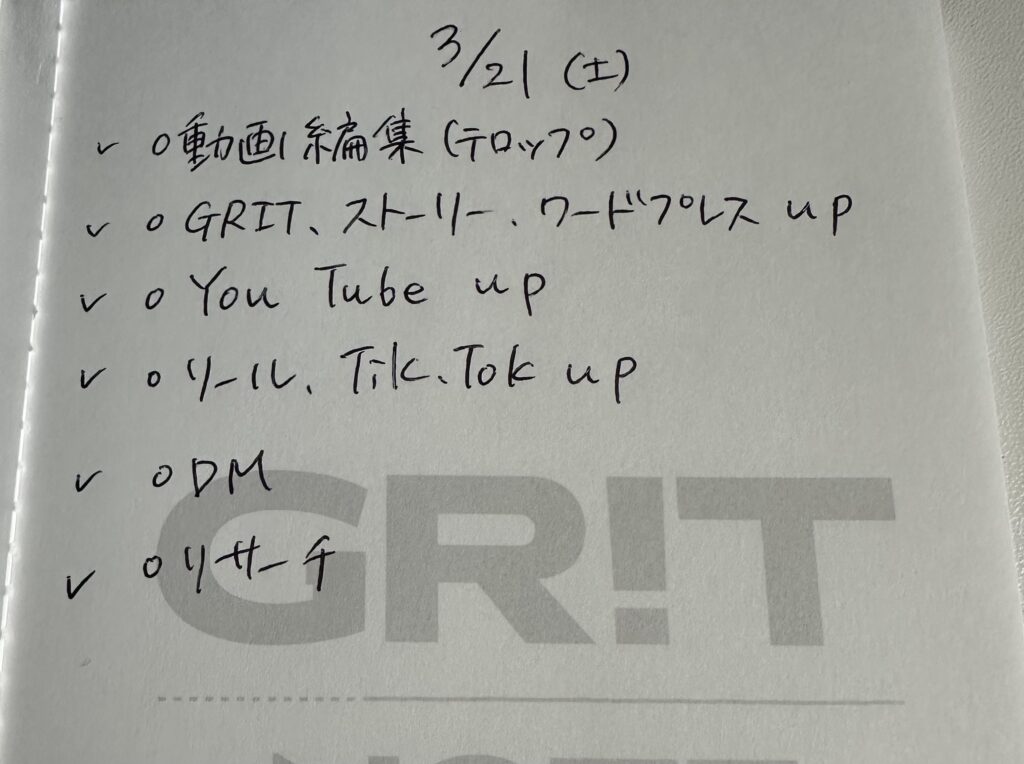 3/21 (土)
✓ ○動画編集(テロップ)
✓ ○GRIT、ストーリー、ワードプレス up
✓ ○You Tube up
✓ ○リール、Tik、Tok up
✓ ○DM
✓ ○リサーチ
GR!T
NOTE